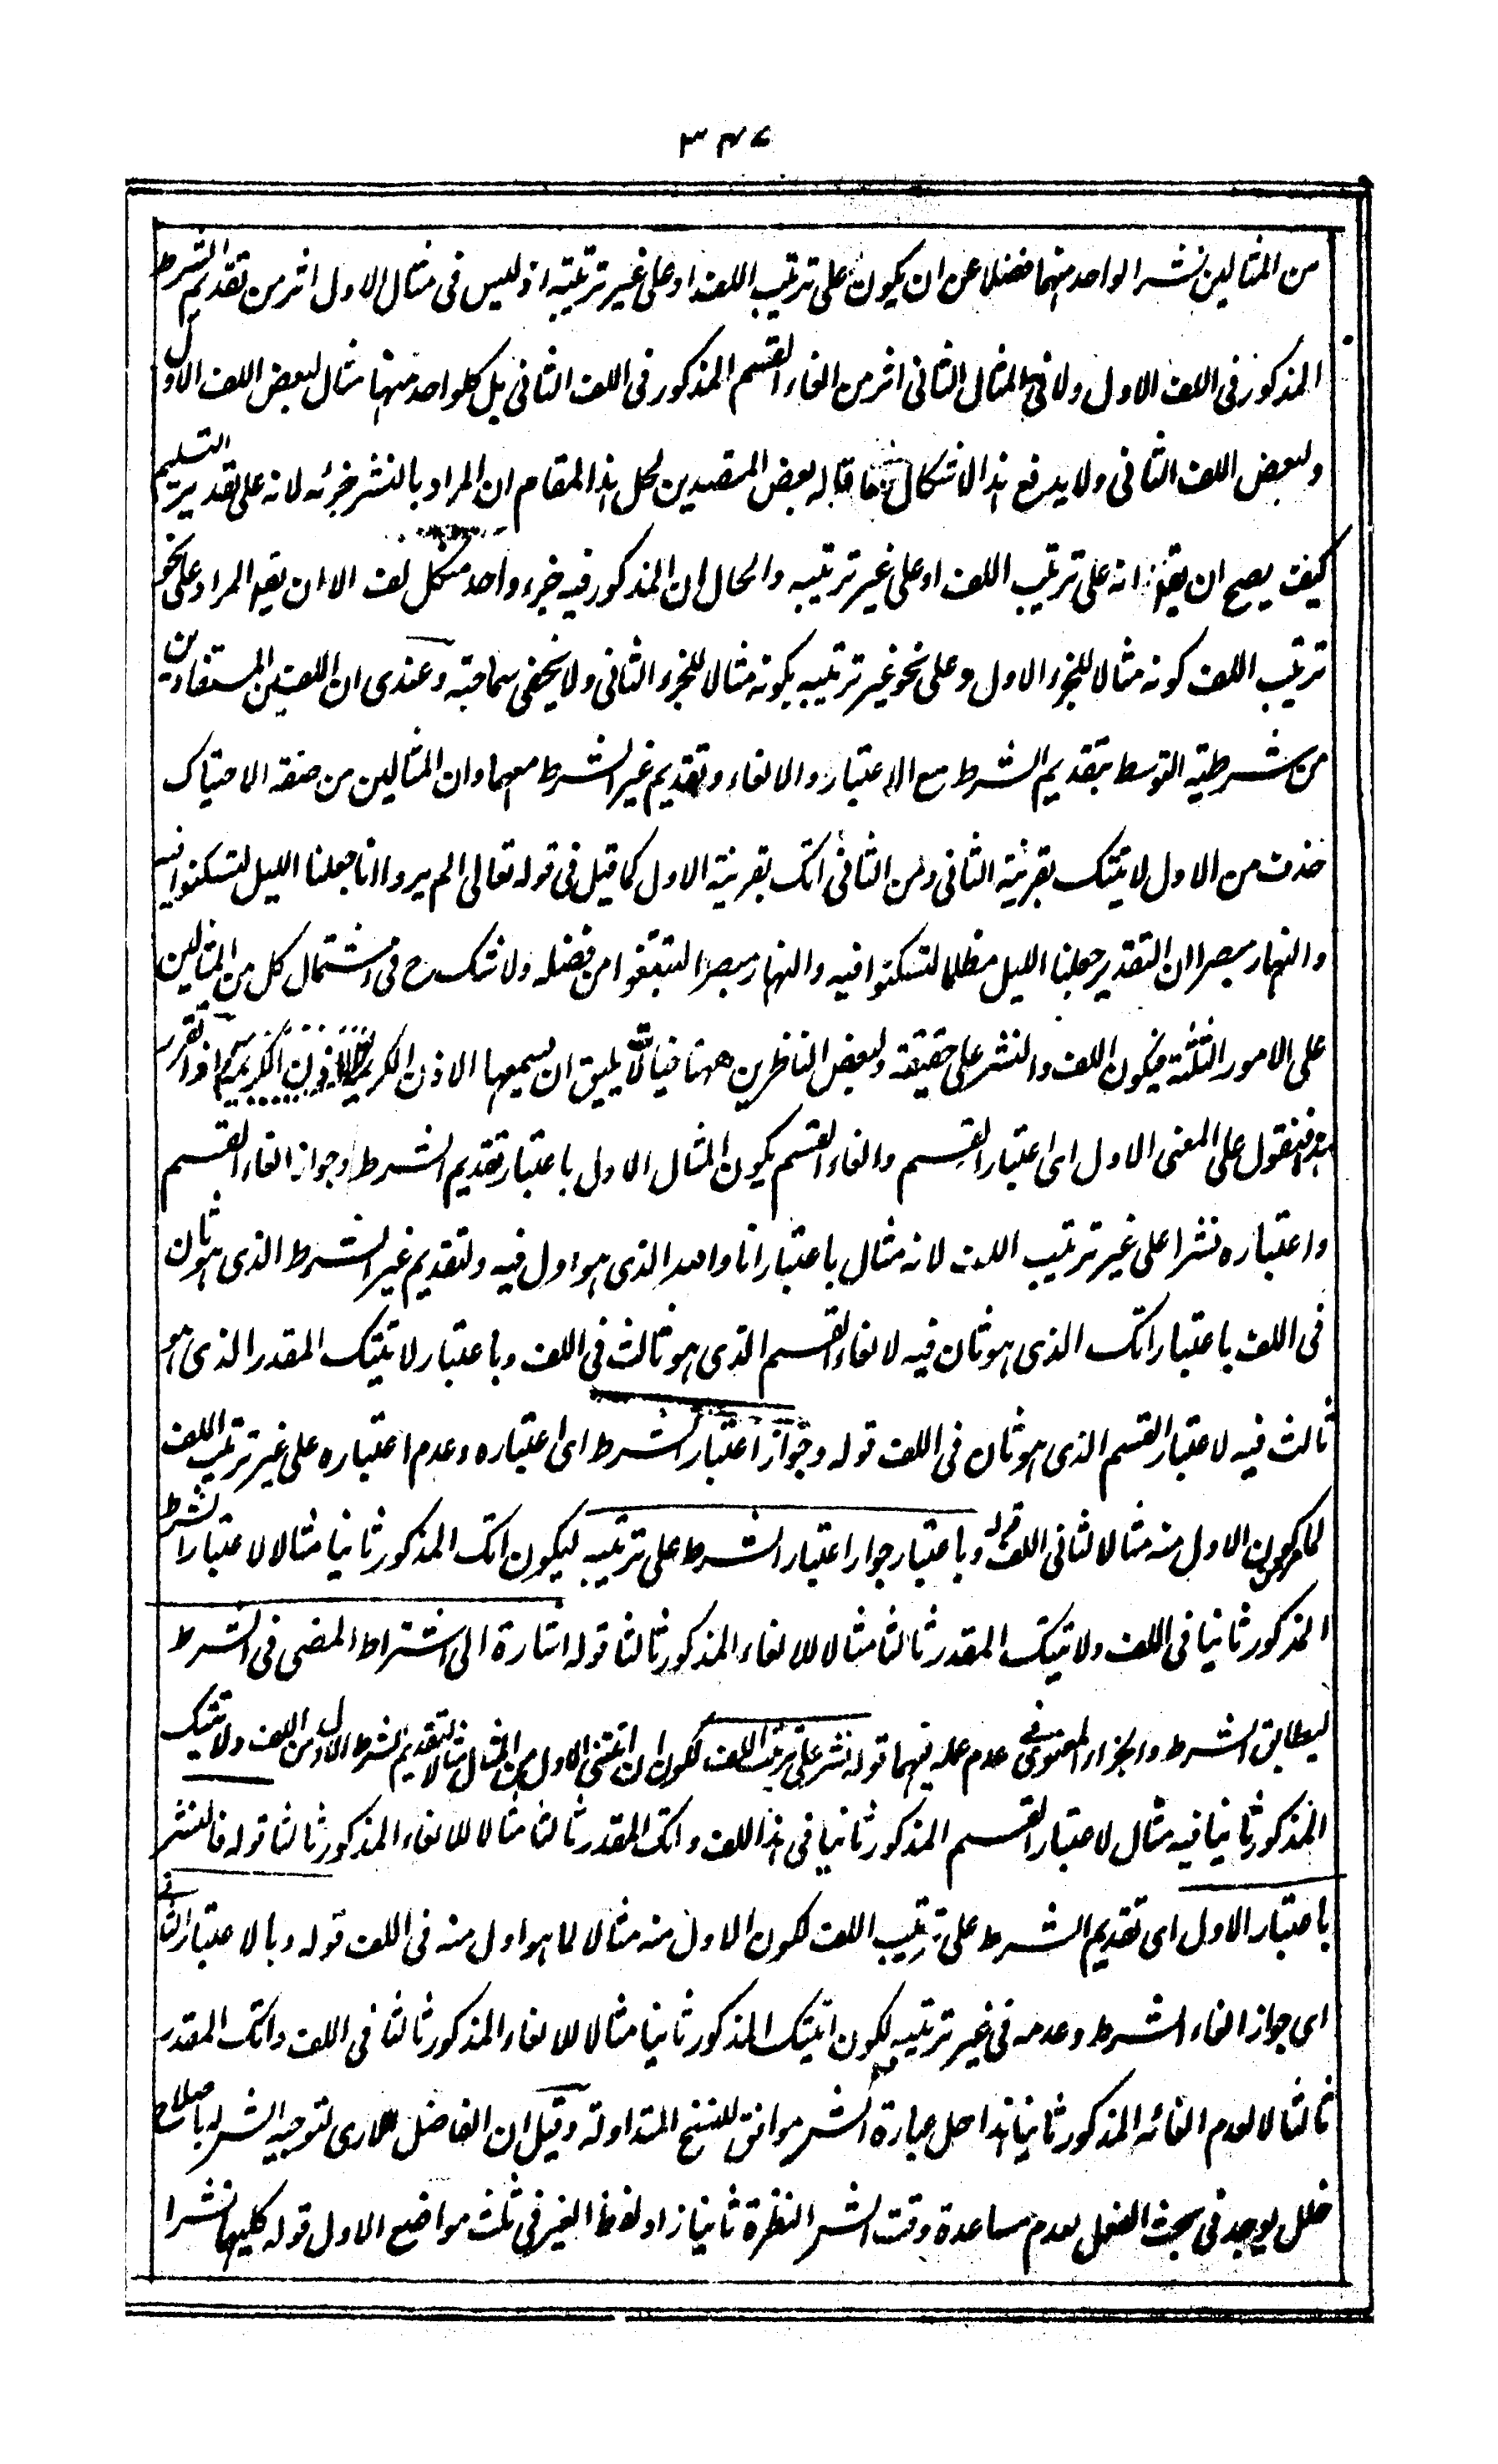 ٣٤٧
من المثالين نشر الواحد منهما فضلا عن ان يكون على ترتيب اللف او على غير ترتيبه اذ ليس فى مثال الاول اثر من تقديم الشرط
المذكور فى اللف الاول ولا فى المثال الثانى اثر من الغاء القسم المذكور فى اللف الثانى بل كلواحد منهما مثال لبعض اللف الاول
ولبعض اللف الثانى ولا يدفع هذا الاشكال بما قاله بعض المتصدين لحل هذا المقام ان المراد بالنشر جزئه لانه على تقدير التسليم
كيف يصح ان يقم انه على ترتيب اللف او على غير ترتيبه والحال ان المذكور فيه جزء واحد من كل لف الا ان يقم المراد على نحو
ترتيب اللف كونه مثالا للجزء الاول و على نحو غير ترتيبه بكونه مثالا للجزء الثانى ولا يخفى سماجته وعندى ان اللفين المستفادين
من شرطية التوسط بتقديم الشرط مع الاعتبار والالغاء وتقديم غير الشرط معهما وان المثالين من صنعة الاحتباك
حذف من الاول لاتيتك بقرينة الثانى ومن الثانى اتك بقرينة الاول كما قيل فى قوله تعالى الم يروا انا جعلنا الليل لتسكنوا فيه
والنهار مبصرا ان التقدير جعلنا الليل مظلما لتسكنوا فيه والنهار مبصرا لتبتغوا من فضله ولا شك ح فى اشتمال كل من المثالين
على الامور الثلثة فيكون اللف والنشر على حقيقة ولبعض الناظرين ههنا خيالا لا يليق ان يسمعها الاذن الكريم اذا تقرر
هذا فنقول على المعنى الاول اى اعتبار القسم والغاء القسم يكون المثال الاول باعتبار تقديم الشرط وجواز الغاء القسم
واعتباره نشرا على غير ترتيب اللف لانه مثال باعتبار انا والله الذى هو اول فيه ولتقديم غير الشرط الذى هو ثان
فى اللف باعتبار اتك الذى هو ثان فيه لالغاء القسم الذى هو ثالث فى اللف وباعتبار لاتيتك المقدر الذى هو
ثالث فيه لاعتبار القسم الذى هو ثان فى اللف قوله وجواز اعتبار الشرط اى اعتباره وعدم اعتباره على غير ترتيب اللف
لما كون الاول منه مثالا لثانى اللف قوله وباعتبار جواز اعتبار الشرط على ترتيبه ليكون اتك المذكور ثانيا مثالا لاعتبار الشرط
المذكور ثانيا فى اللف ولاتيتك المقدر ثالثا مثالا للالغاء المذكور ثالثا قوله اشارة الى اشتراط المضى فى الشرط
ليطابق الشرط والجزاء المعنوى فى عدم عمله فيهما قوله نشر على ترتيب اللف لكون ان اتيتنى الاول من المثال مثالا لتقديم الشرط الاول من اللف ولاتيتك
المذكور ثانيا فيه مثال لاعتبار القسم المذكور ثانيا فى هذا اللف واتك المقدر ثالثا مثالا للالغاء المذكور ثالثا قوله فالنشر
باعتبار الاول اى تقديم الشرط على ترتيب اللف لكون الاول منه مثالا لما هو اول منه فى اللف قوله وبالاعتبار الثانى
اى جواز الغاء الشرط وعدمه فى غير ترتيبه لكون اتيتك المذكور ثانيا مثالا للالغاء المذكور ثالثا فى اللف واتك المقدر
ثالثا لا لعدم الغائه المذكور ثانيا هذا حل عبارة الشر موافق للنسخ المتداولة وقيل ان الفاضل اللارى لتوجيه الشر له باصلاح
خلل يوجد فى بحث الفعل لعدم مساعدة وقت الشر النظرة ثانيا زاد لفظ الغير فى ثلث مواضع الاول قوله كليهما نشرا